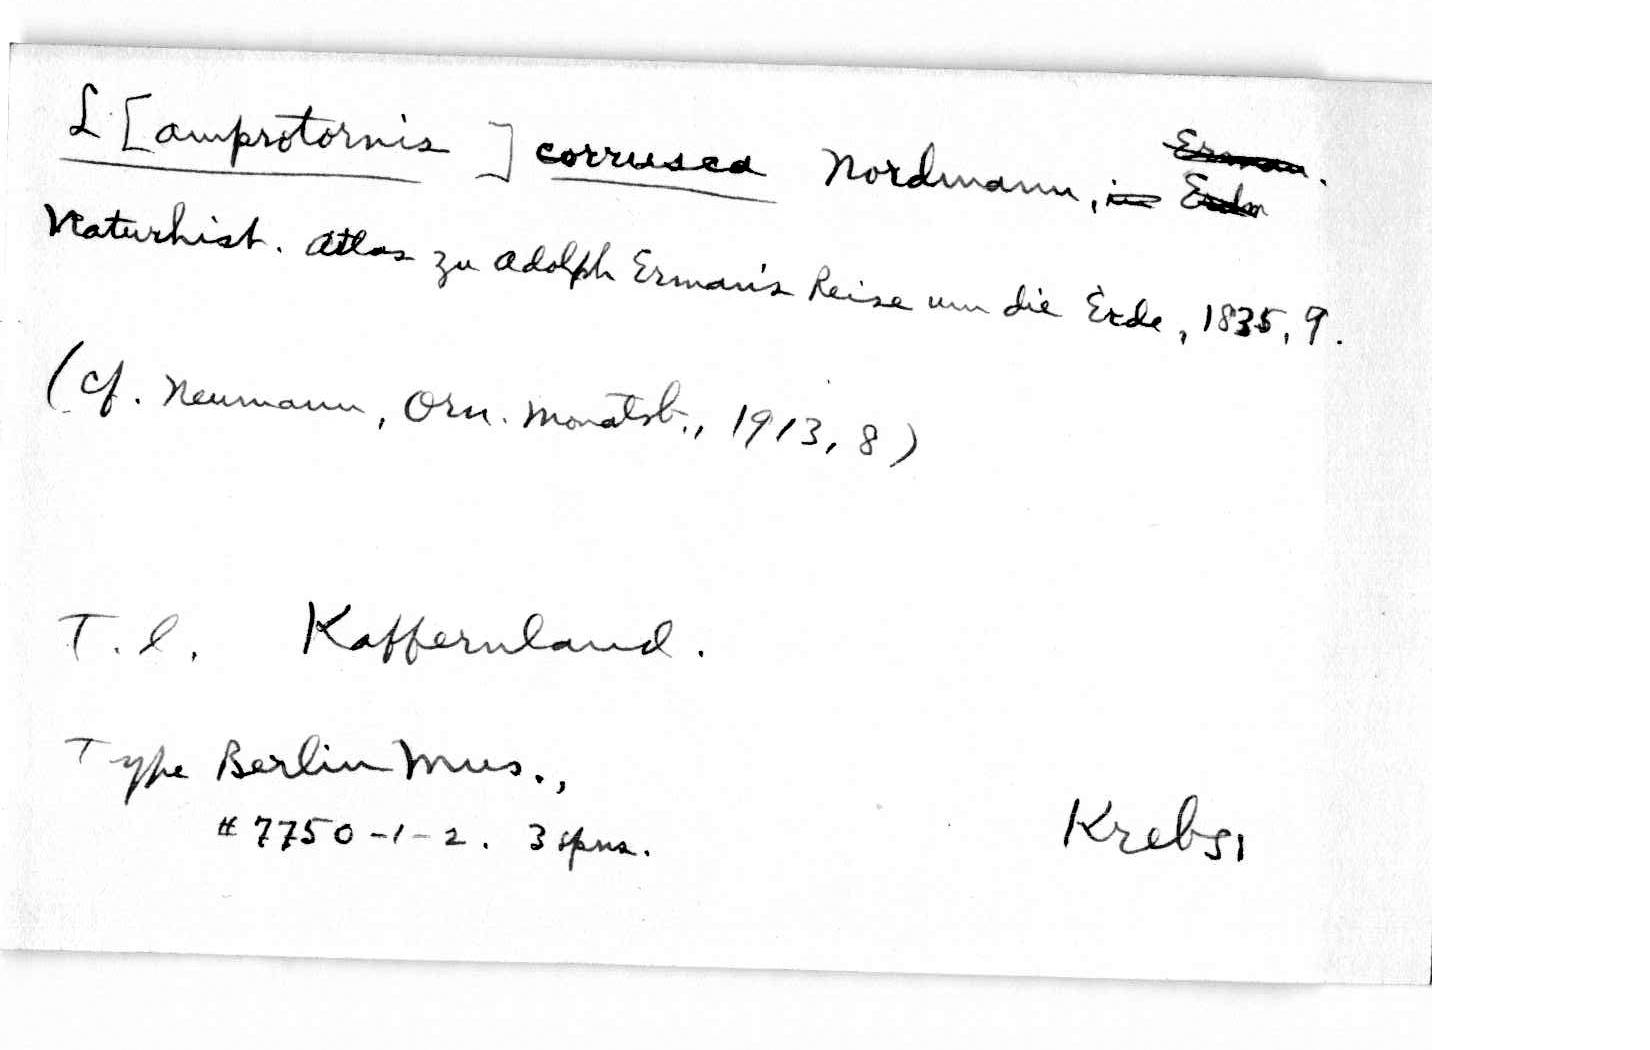 L[amprotornis] corrusca Nordmann, in Erman.
Erde
Naturhist. Atlas zu Adolph Erman's Reise um die Erde, 1835, 9.
(cf. Neumann, Orn. Monatsb., 1913, 8)
T.l. Kaffernland.
Type Berlin Mus.,
# 7750-1-2. 3 spns.
Krebs,